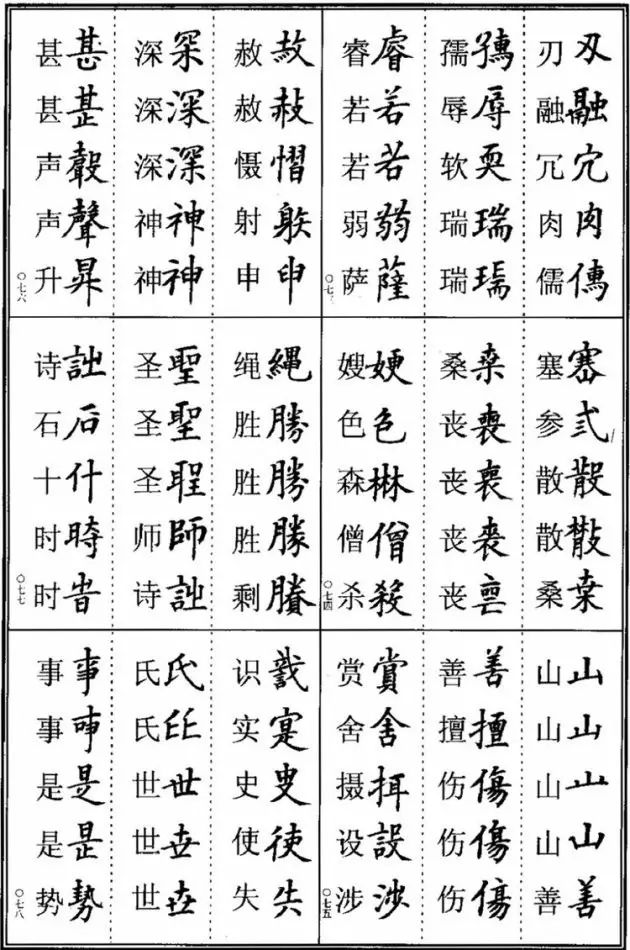 刃 刄
融 融
冗 宂
肉 肉
儒
孺
辱 辱
软 耎
瑞 瑞
瑞
睿 睿
若 若
若 若
弱 弱
萨 薩
塞 塞
参 弎
散 散
散
桑 桒
桑 桒
丧 喪
丧
丧
丧
嫂
色 色
森
僧 僧
杀 殺
〇七四
山 山
山 山
山 山
山 山
善 善
善 善
擅 擅
伤 傷
伤 傷
伤 傷
赏 賞
舍 舍
摄
设 設
涉 涉
〇七五
赦 赦
赦 赦
慑 慴
射 躲
申 申
深 罙
深 深
深 深
神 神
神 神
甚 甚
甚
声
声 聲
升 昇
〇七六
绳 縄
胜 勝
胜 勝
胜 勝
剩
圣 聖
圣 聖
圣
师 師
诗 詘
诗 詘
石 石
十 什
时
时 旹
〇七七
识
实 寔
史
使 使
失 失
氏 氏
氏
世 世
世 丗
世
事 事
事
是 是
是 昰
势 勢
〇七八